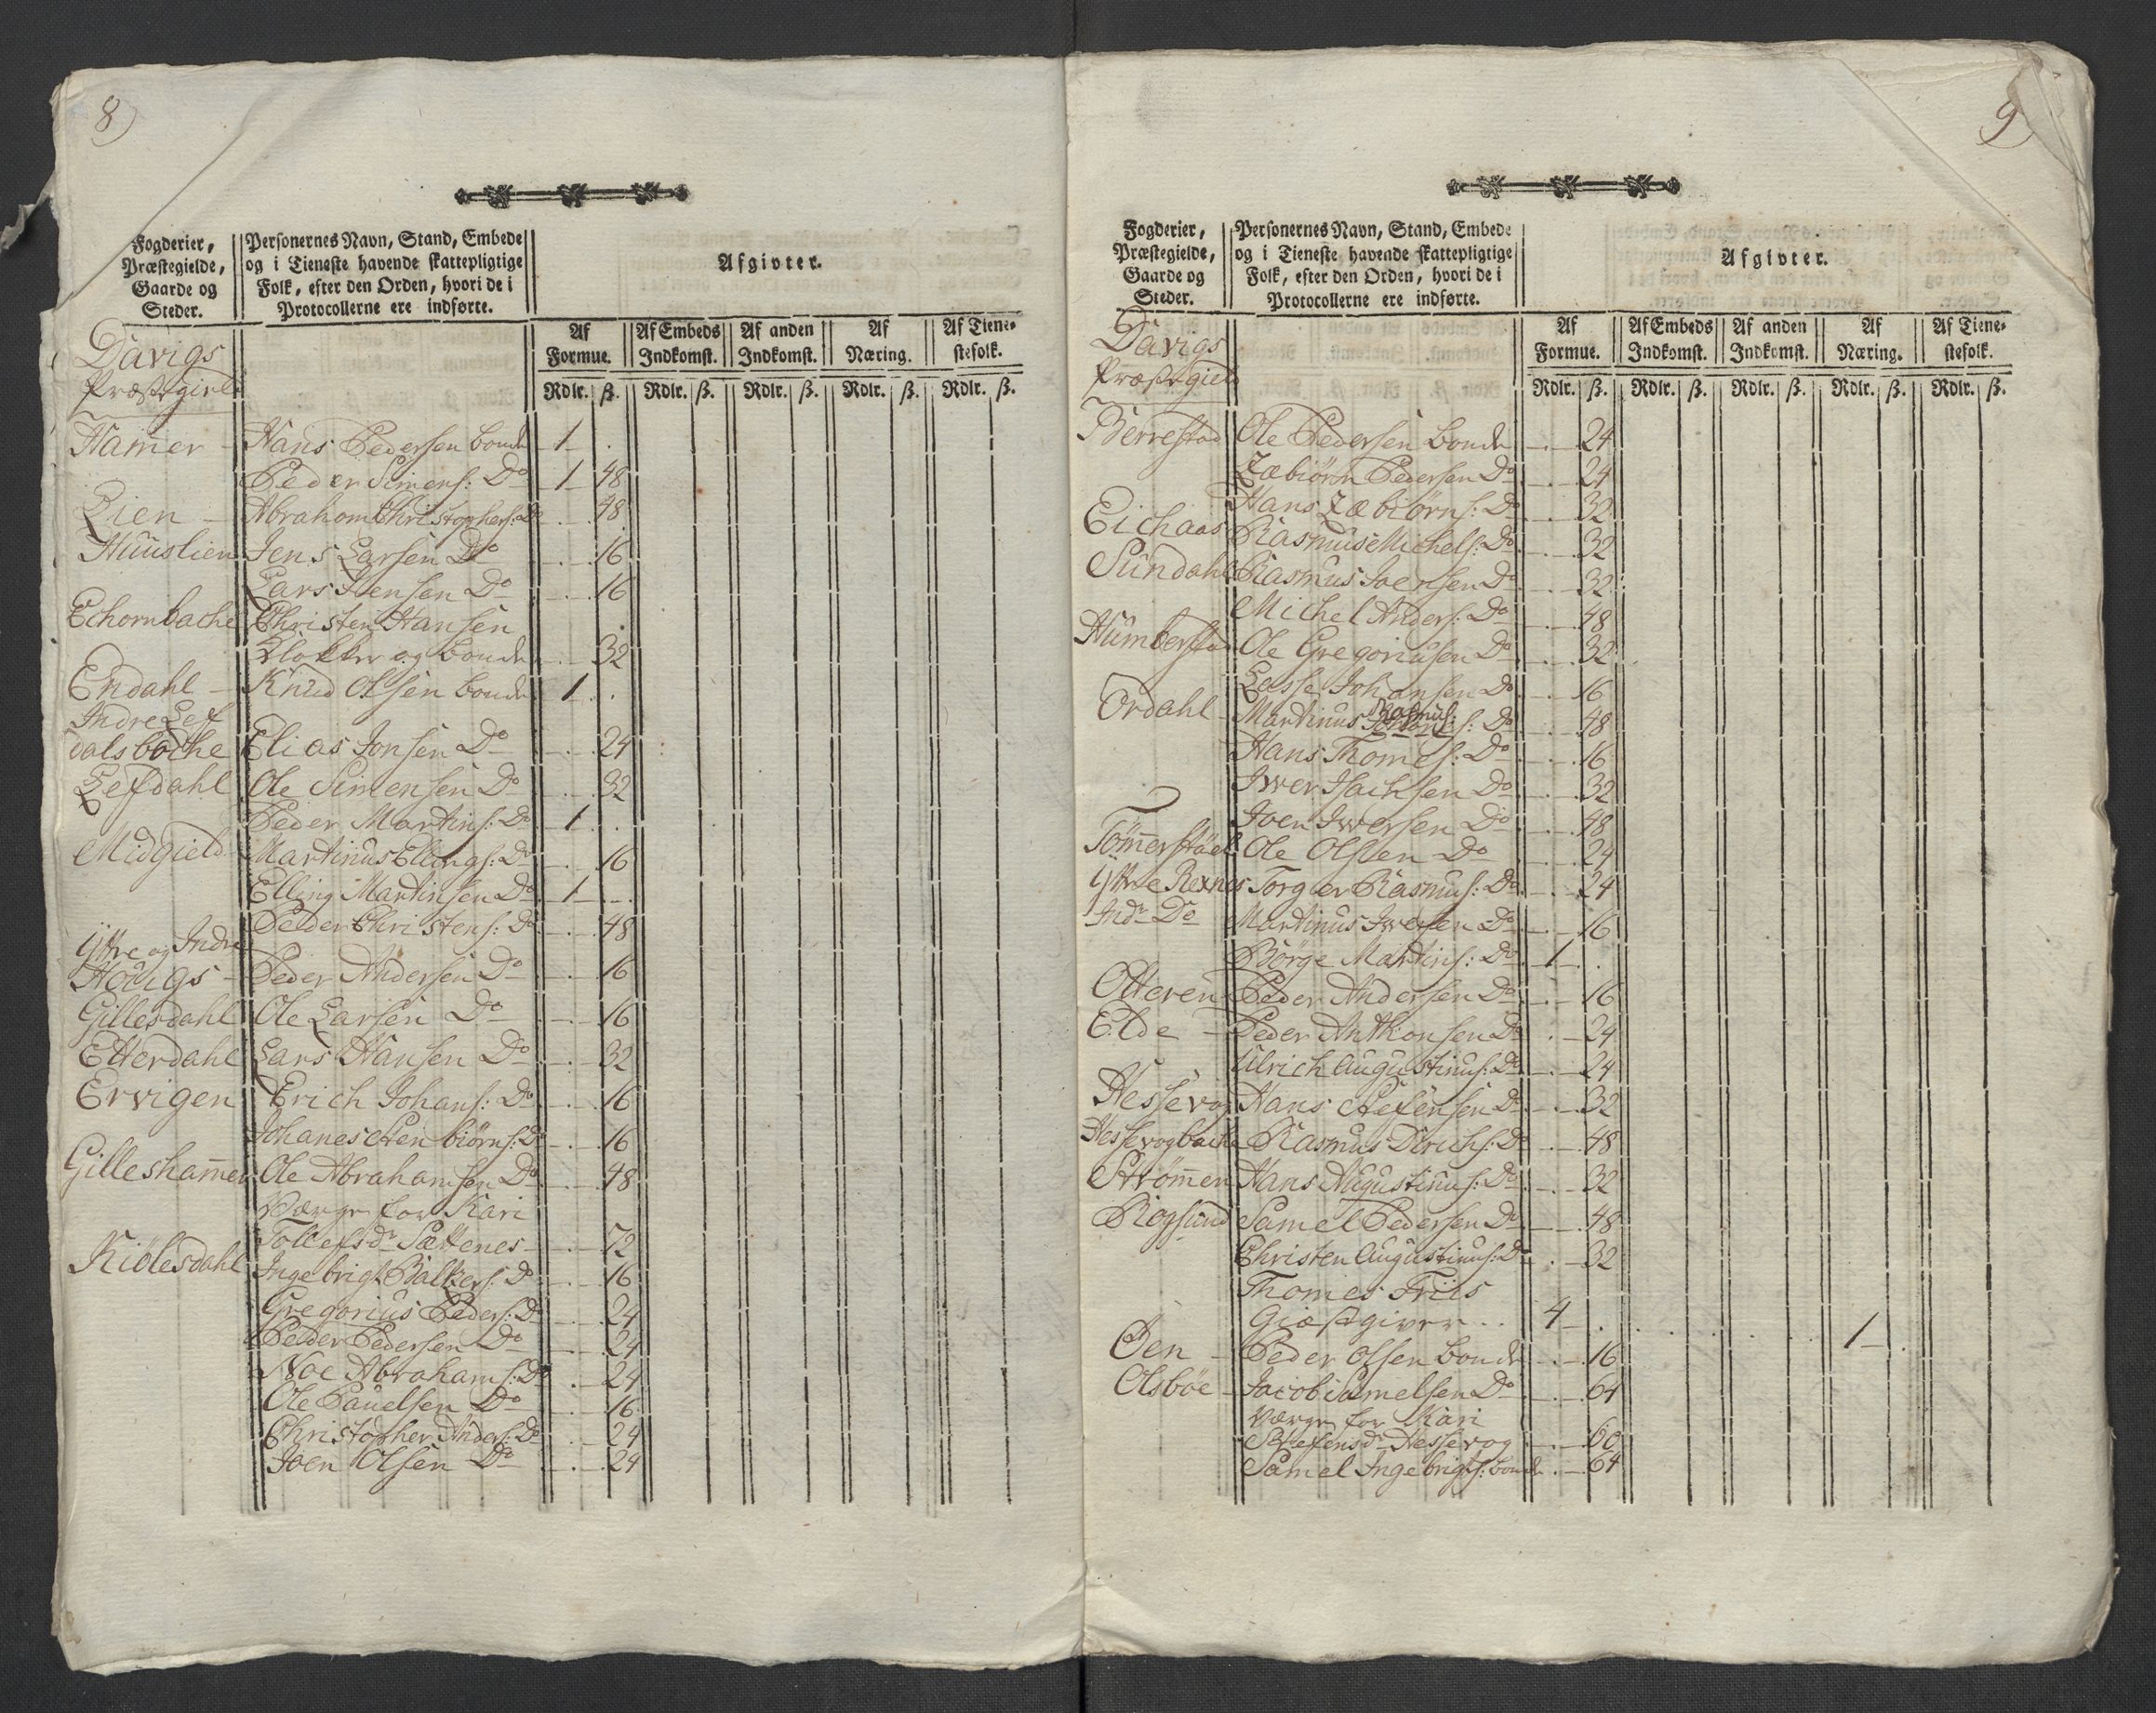 8)
Fogderier,
Præstegielde,
Gaarde og
Steder.
Personernes Navn, Stand, Embede
og i Tieneste havende skattepligtige
Folk, efter den Orden, hvori de i
Protocollerne ere indførte.
Afgivter.
Af Formue. Af Embeds Indkomst. Af anden Indkomst. Af Næring. Af Tienestefolk.
Rdlr. ß. Rdlr. ß. Rdlr. ß. Rdlr. ß. Rdlr. ß.
Davigs
Præstegield
Hamer - Hans Pedersen bonde 1 - .
Peder Simens: Do 1 - 48
Lien - Abraham Christophers: Do - 48
Huuslien Jens Larsen Do - 16
Lars Jensen Do - 16
Echornbache Christen Hansen
Klokker og bonde - 32
Endahl - Knud Olsen bonde 1 .
Indre Lef
dalsbache Elias Jonsen Do - 24
Lefdahl Ole Simensen Do - 32
Peder Martins: Do 1 .
Midgield Martinus Ellings: Do - 16
Elling Martinsen Do 1 - .
Peder Christens: Do - 48
Ÿttre og Indre
Hougs - Peder Andersen Do - 16
Gillesdahl Ole Larsen Do - 16
Etterdahl Lars Hansen Do - 32
Ervigen Erich Johans: Do - 16
Johanes Stenbiörns: Do - 16
Gilleshamer Ole Abrahamsen Do - 48
Værge for Kari
Tollefsdr Sættenes - 72
Kiölesdahl Ingebrigt Balzers: Do - 16
Gregorius Peders: Do - 24
Peder Pedersen Do - 24
Noe Abrahams: Do - 24
Ole Pauelsen Do - 16
Christopher Anders: Do - 24
Joen Olsen Do - 24
9
Fogderier,
Præstegielde,
Gaarde og
Steder.
Personernes Navn, Stand, Embede
og i Tieneste havende skattepligtige
Folk, efter den Orden, hvori de i
Protocollerne ere indførte.
Afgivter.
Af Formue. Af Embeds Indkomst. Af anden Indkomst. Af Næring. Af Tienestefolk.
Rdlr. ß. Rdlr. ß. Rdlr. ß. Rdlr. ß. Rdlr. ß.
Davigs
Præstegield
Berrestad Ole Pedersen bonde - 24
Zæbiörn Pedersen Do - 24
Hans Zæbiörns: Do - 32
Eichaas Rasmus Michels: Do - 32
Sundahl Rasmus Joensen Do - 32
Michel Anders: Do - 48
Humberstad Ole Gregoriusen Do - 32
Lasse Johansen Do - 16
Ordahl - Martinus Rasmus: Do - 48
Hans Thomes: Do - 16
Iwer Isachsen Do - 32
Joen Iwersen Do - 48
Tömerstöel Ole Olsen Do - 24
Ÿttre Rexnes Torger Rasmus: Do - 24
Indr Do Martinus Iwersen Do - 16
Börge Martins: Do 1 - .
Otteren Peder Andersen Do - 16
Elde - Peder Anthonsen Do - 24
Ulrich Augustinus: Do - 24
Hessevog Hans Stefensen Do - 32
Hessevogbache Rasmus Dirichs: Do - 48
Strömen Hans Augustinus: Do - 32
Rogsund Samel Pedersen Do - 48
Christen Augustinus: Do - 32
Thomes Friis
Giæstgiver . . 4 - . 1 - .
Øen - Peder Olsen bonde - 16
Olsböe - Jacob Samelsen Do - 64
Værge for Kari
Stefensdr Hessevog - 60
Samel Ingebrigts: bonde - 64